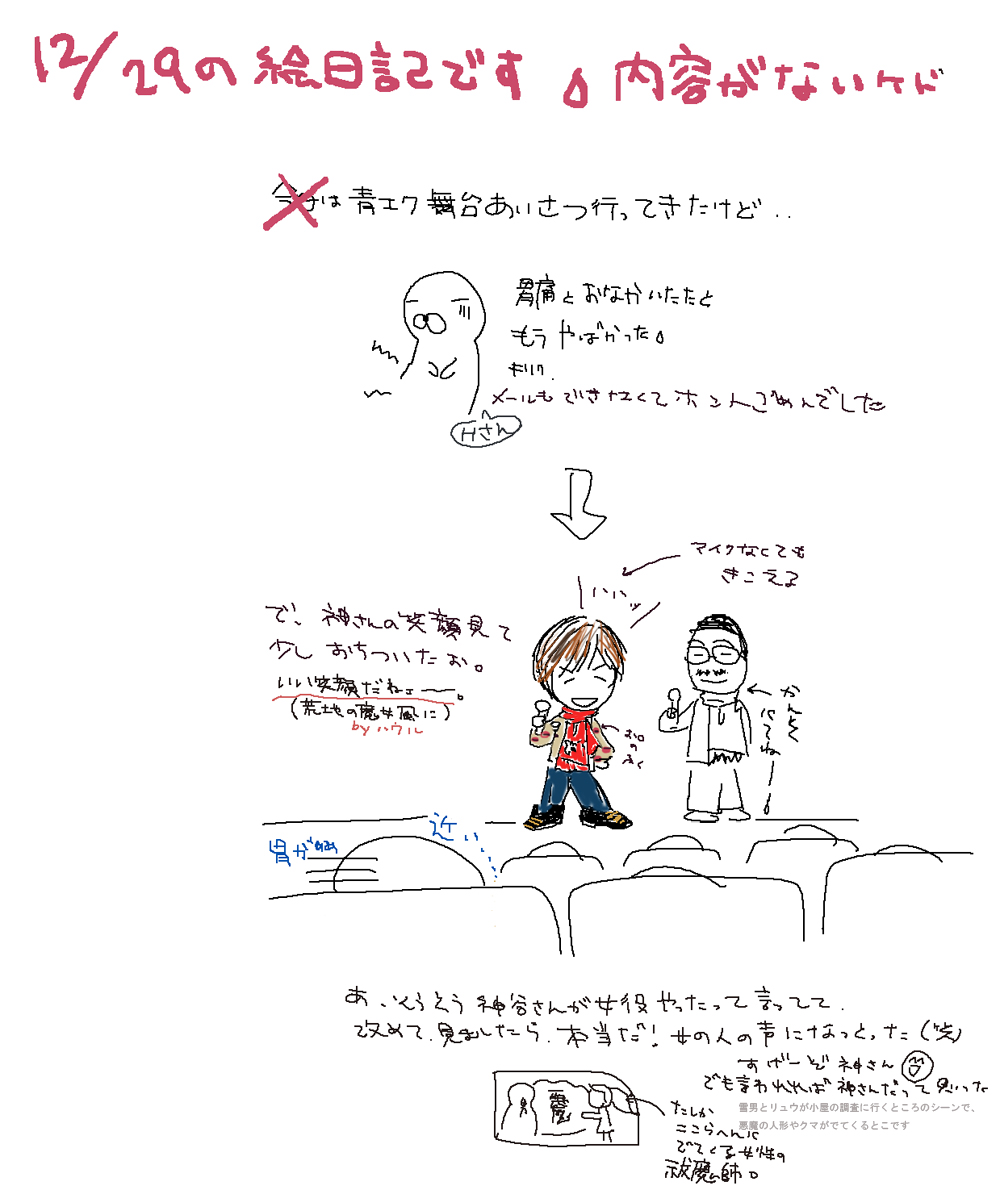 12/29の絵日記です 内容がないケド
今日は青エク舞台あいさつ行ってきたけど..
胃痛とおなかいたたと
もうやばかった
キリリ.
メールもできなくてホントごめんでした
Hさん
マイクなくても
きこえる
ハハハッ
で、神さんの笑顔見て
少しおちついたお。
いい笑顔だねぇーー。
(荒地の魔女風に)
byハウル
かんとく
にてねー
のふく
近い
胃が
あ、そうそう神谷さんが女役やったって言ってて.
改めて.見ましたら.本当だ!女の人の声になっとった(笑)
すげーぞ神さん
でも言われれば神さんだって思いった
たしか
ここらへんに
でてくる女性の
祓魔師。
雪男とリュウが小屋の調査に行くところのシーンで、
悪魔の人形やクマがでてくるとこです